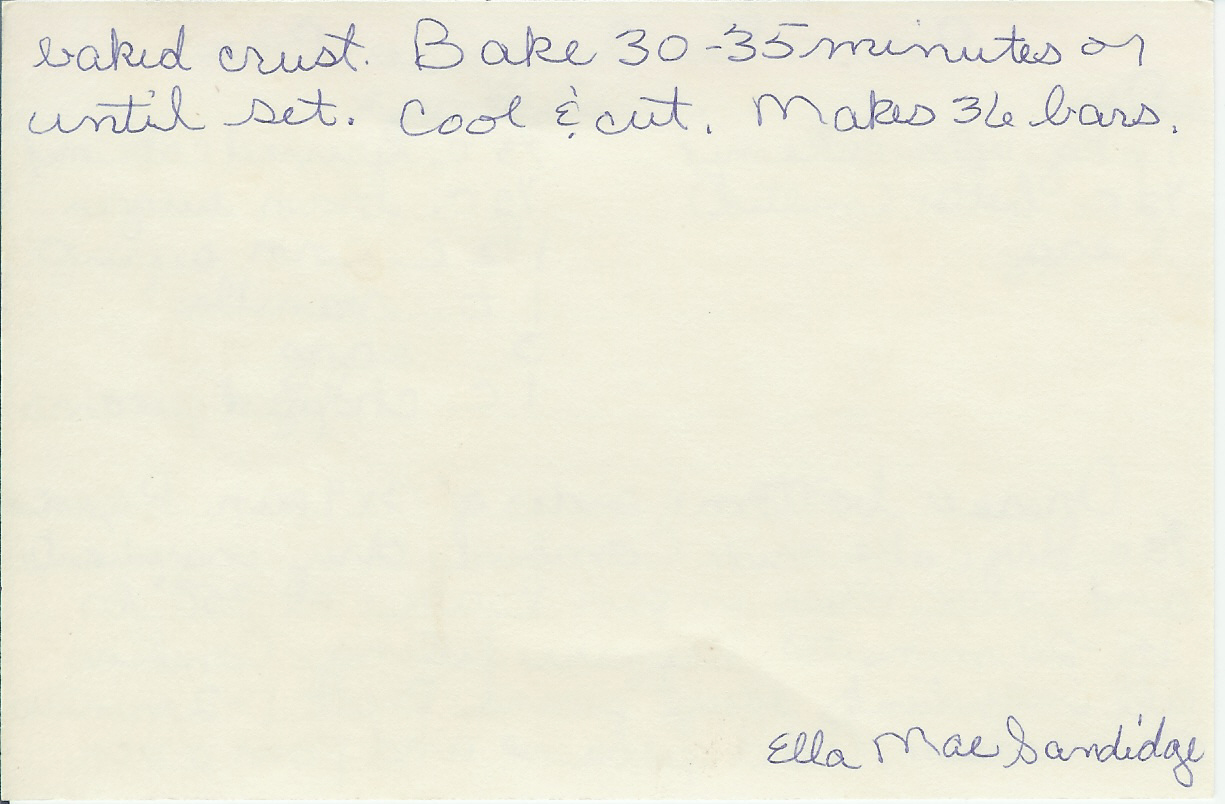 baked crust. Bake 30-35 minutes or
until set. Cool & cut. Makes 36 bars.
Ella Mae Sandidge